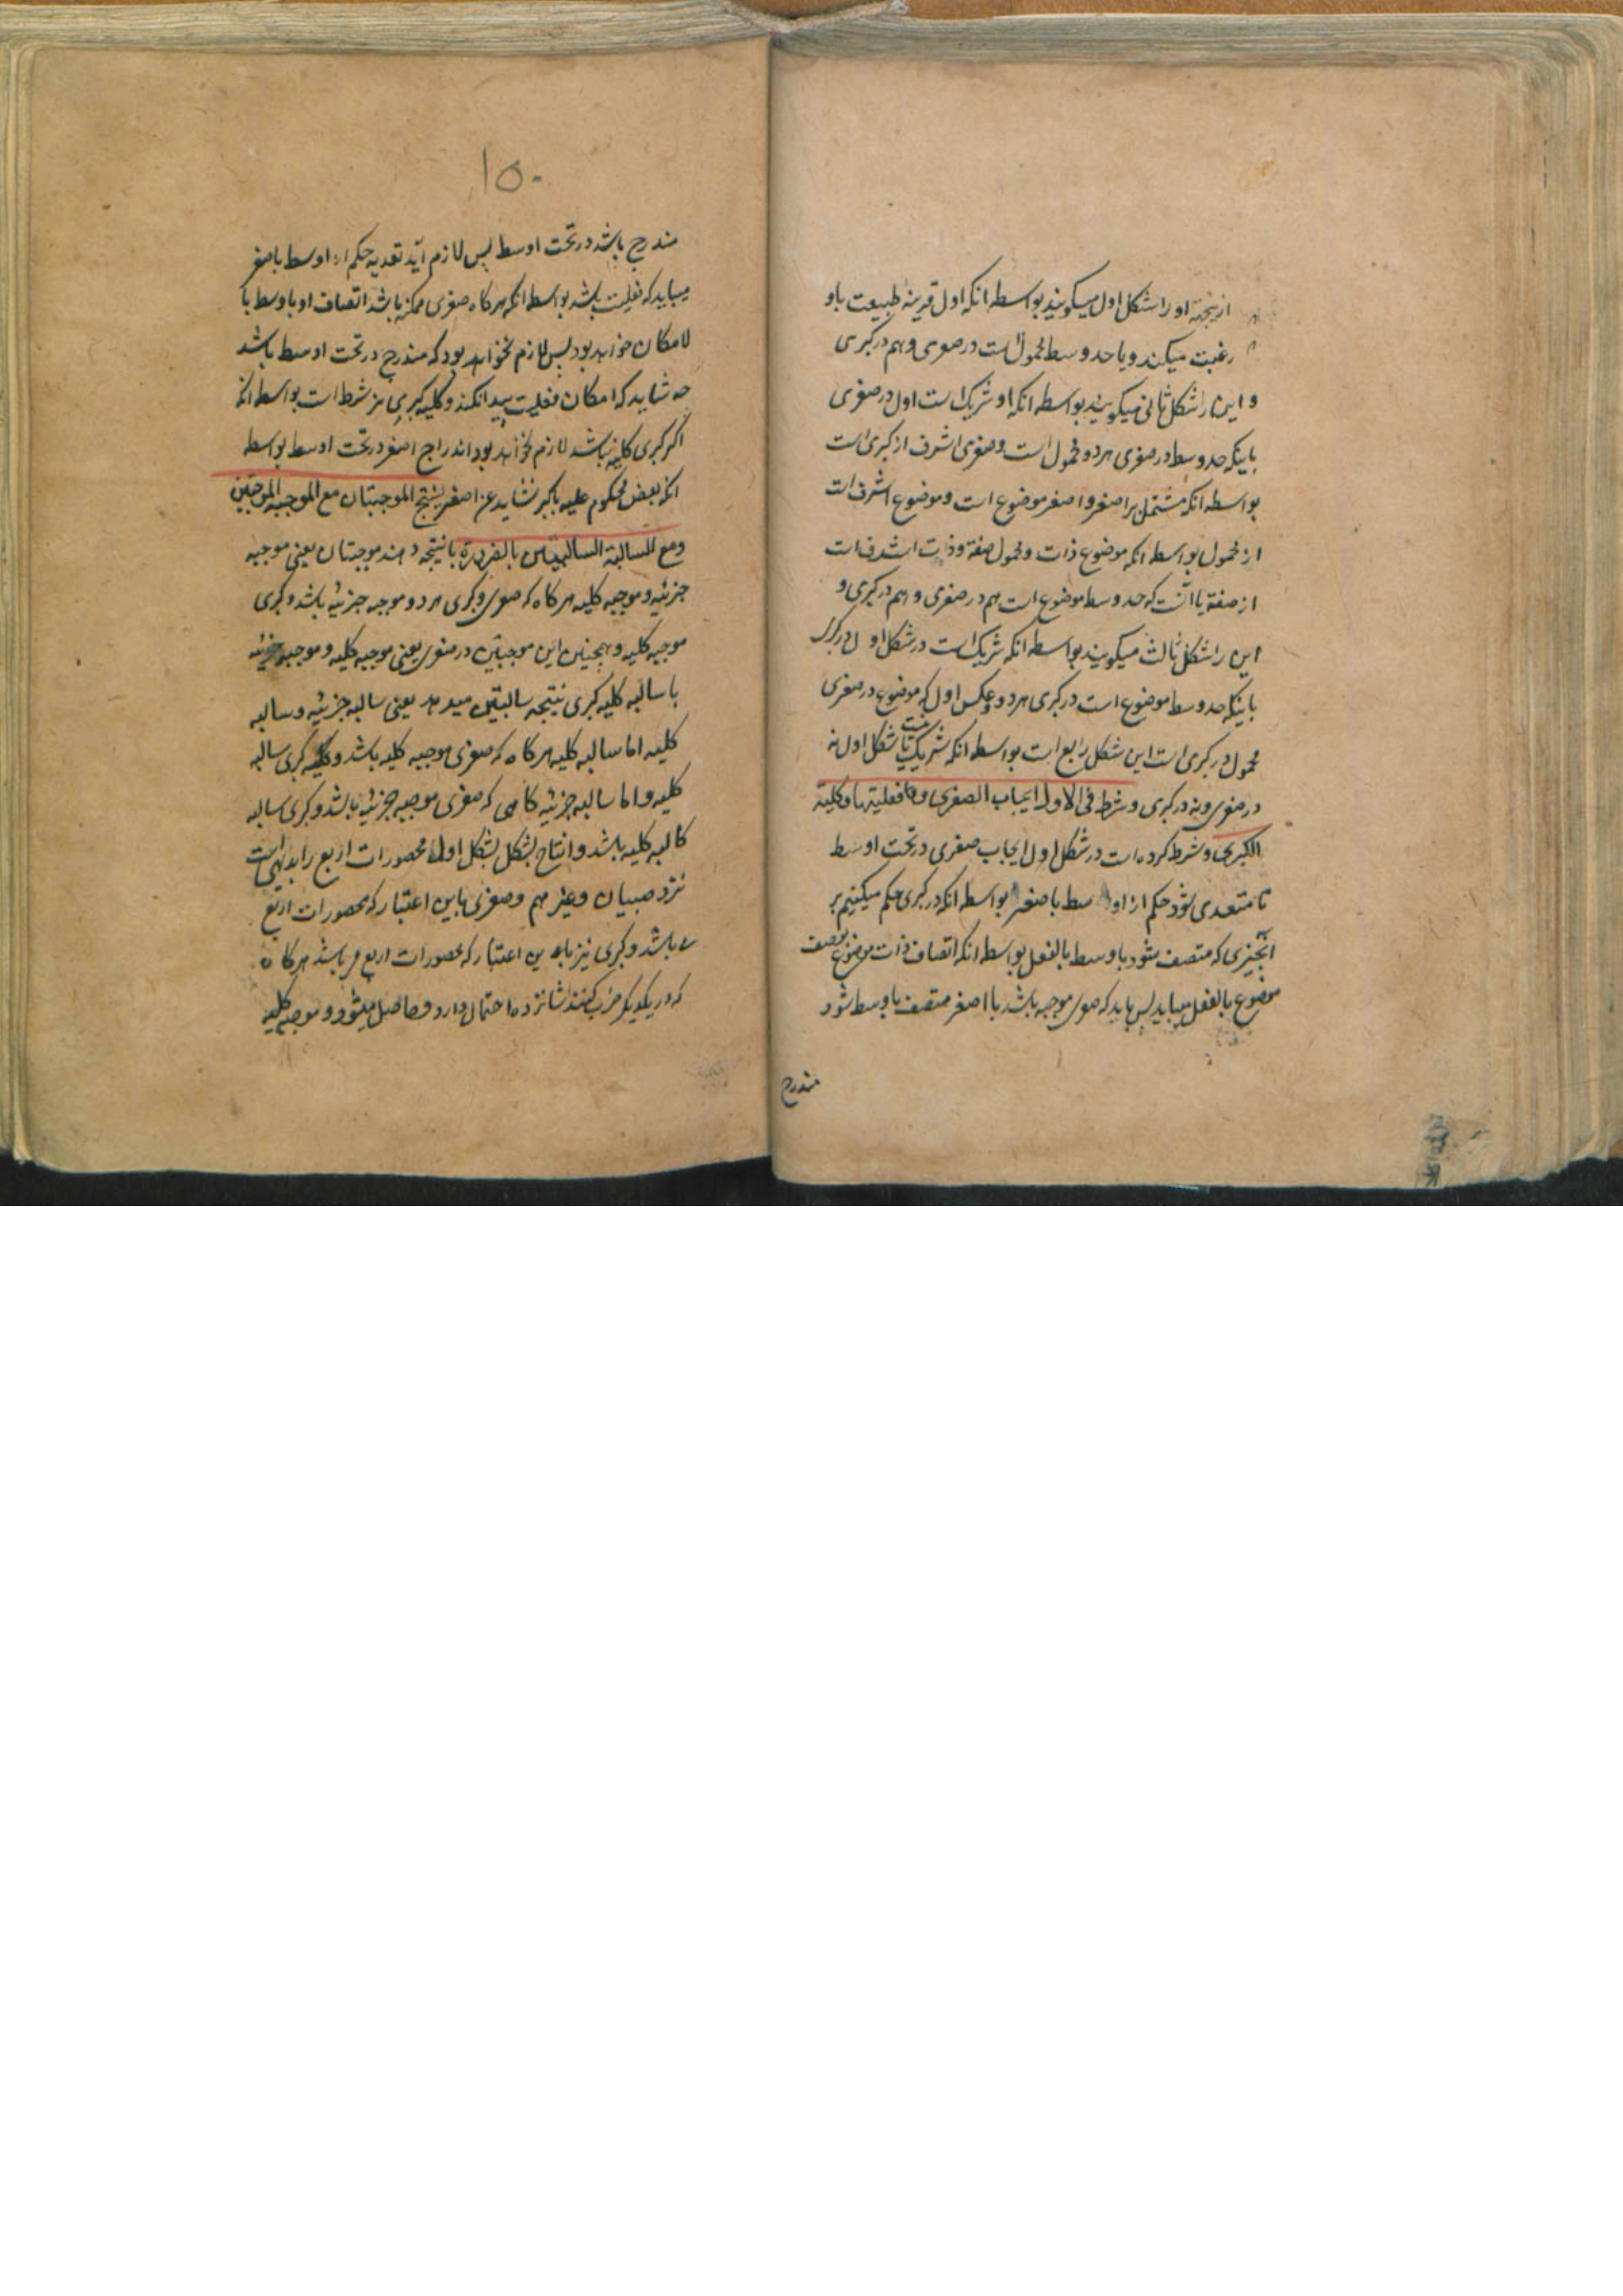 ازینجهة او را شکل اول میکویند بواسطه انکه اول قرینه طبیعت باو
رغبت میکند و یا حد وسط محمول است در صوی و هم در کبری
و این را شکل ثانی میکویند بواسطه انکه او شریک است اول در صغری
باینکه حد وسط در صغری هر دو محمول است و صغری اشرف از کبری است
بواسطه انکه مشتمل بر اصغر و اصغر موضوع است و موضوع اشرف است
از محمول بواسطه انکه موضوع ذات و محمول صفة و ذات اشرف است
از صفة یا آنست که حد وسط موضوع است هم در صغری و هم در کبری و
این را شکل ثالث میکویند بواسطه انکه شریک است در شکل اول در
باینکه حد وسط موضوع است در کبری هر دو و عکس اول که موضوع در صغری
محمول در کبری است این شکل رابع است بواسطه انکه شریک نیست با شکل اول نه
در صغری و نه در کبری و شرط فی الاول ایجاب الصغری و فعلیتها و کلیة
الکبری و شرط کرده است در شکل اول ایجاب صغری در تحت اوسط
تا متعدی شود حکم از اوسط باصغر بواسطه انکه در کبری حکم میکنیم بر
آنچیزی که متصف شود باوسط بالفعل بواسطه انکه اتصاف ذات موضوع بوصف
موضوع بالفعل میباید پس باید که صوی موجبه باشد با اصغر متصف باوسط شود
مندرج
۱۵۰
مندرج باشد در تحت اوسط پس لازم آید تعدیه حکم از اوسط باصغر
میباید که فعلیت باشد بواسطه انکه هرکاه صغری ممکنه باشد اتصاف او باوسط با
لامکان خواهد بود پس لازم نخواهد بود که مندرج در تحت اوسط باشد
چه شاید که امکان فعلیت پیدا نکند و کلیه کبری نیز شرط است بواسطه انکه
اکر کبری کلیه نباشد لازم نخواهد بود اندراج اصغر در تحت اوسط بواسطه
انکه بعض محکوم علیه باکبر شاید غیر اصغر ینتج الموجبتان مع الموجبة الموجبتین
ومع السالبة السالبتین بالضرورة یا نتیجه دهند موجبتان یعنی موجبه
جزئیه و موجبه کلیه هرکاه که صوی و کبری هر دو موجبه جزئیه باشد و کبری
موجبه کلیه و همچنین این موجبتین در صغری یعنی موجبه کلیه و موجبه جزئیه
با سالبه کلیه کبری نتیجه سالبتین میدهد یعنی سالبه جزئیه و سالبه
کلیه اما سالبه کلیه هرکاه که صغری موجبه کلیه باشد و کبری سالبه
کلیه و اما سالبه جزئیه کاهی که صغری موجبه جزئیه باشد و کبری سالبه
کالبه کلیه باشد و انتاج لشکل بشکل اول محصورات اربع را بدیهی است
نزد صبیان و غیر هم و صغری باین اعتبار که محصورات اربع
باشد و کبری نیز باین اعتبار که محصورات اربع باشد هرکاه
که در یکدیکر ضرب کنند شانزده احتمال دارد و حاصل میشود و موجبه کلیه